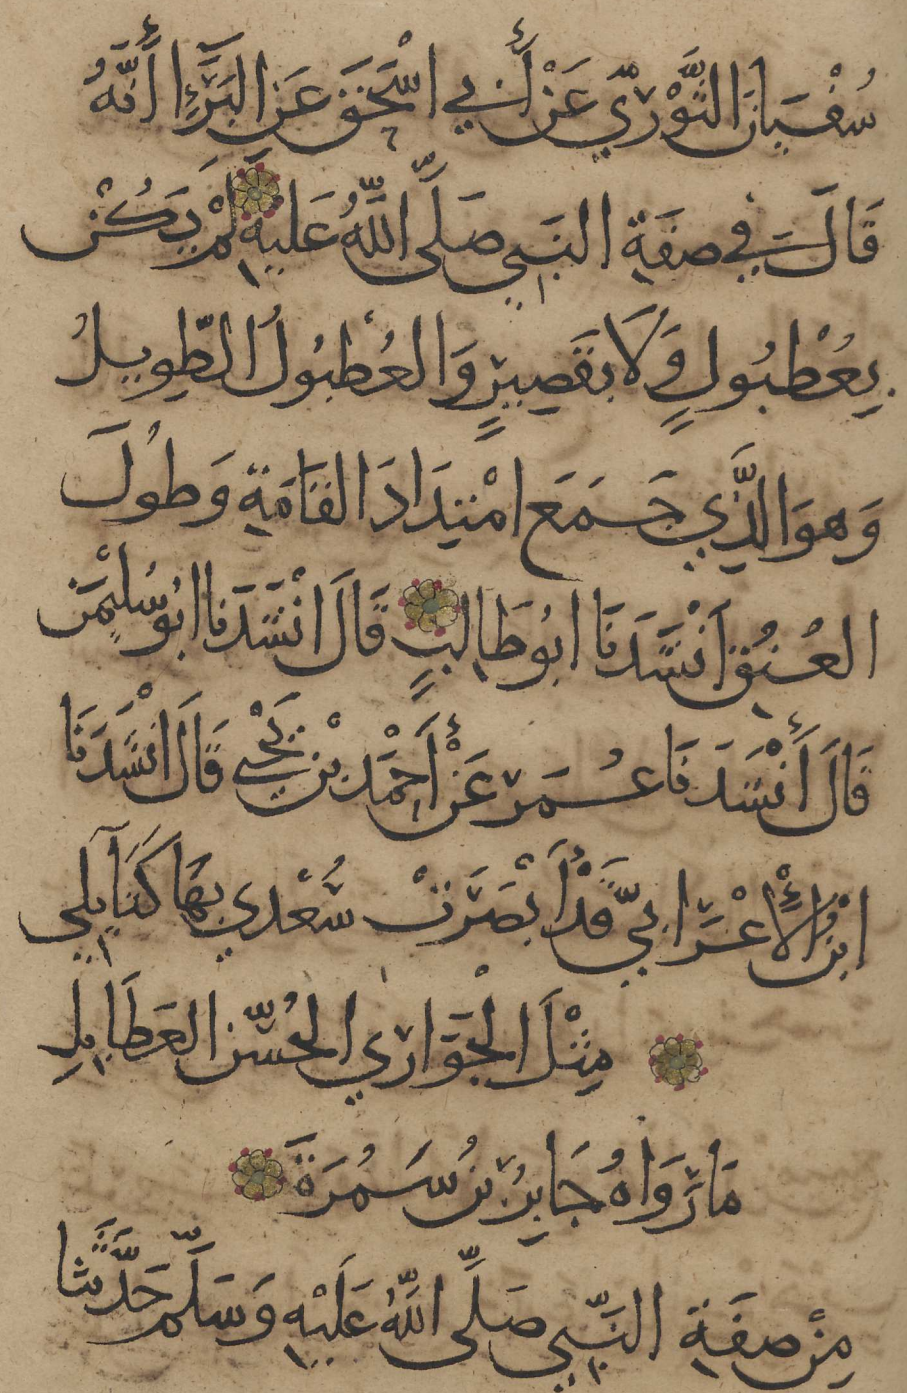 سُفْيَانَ الثَّوْرِيِّ عَنْ أَبِي اسْحَقَ عَنِ البَرَّاءِ أَنَّهُ
قَالَ فِي صِفَةِ النَّبِي صَلَّى اللَّهُ عَلَيْهِ لَمْ يَكُنْ
بِعُطْبُولٍ وَلَا بِقَصِيرٍ وَالعُطْبُولُ الطَّوِيلُ
وَهوَ الَّذِي جَمَعَ امْتِدَادَ القَامَةِ وَطُولَ
العُنُقِ انْشَدَنَا ابُو طَالبٍ قَالَ انْشَدَنَا ابُو سُلَيْمَن
قَالَ أَنْشَدَنَا عُمَر عَنْ أَحْمَدَ بْنِ يَحْيَى قَالَ انْشَدَنَا
ابْنُ الأَعْرَابِيِّ قَدْ أَبْصَرَتْ سُعْدِي بِهَا كَنَايِلِي
مِثْلَ الْجَوَارِي الحُسَّنِ العَطَابِلِ
مَا رَوَاهُ جَابِرُ بْنُ سَمُرَةَ
مِنْ صِفَةِ النَّبِيِّ صَلَّى اللَّهُ عَلَيْهِ وَسَلَّم حَدَّثَنَا